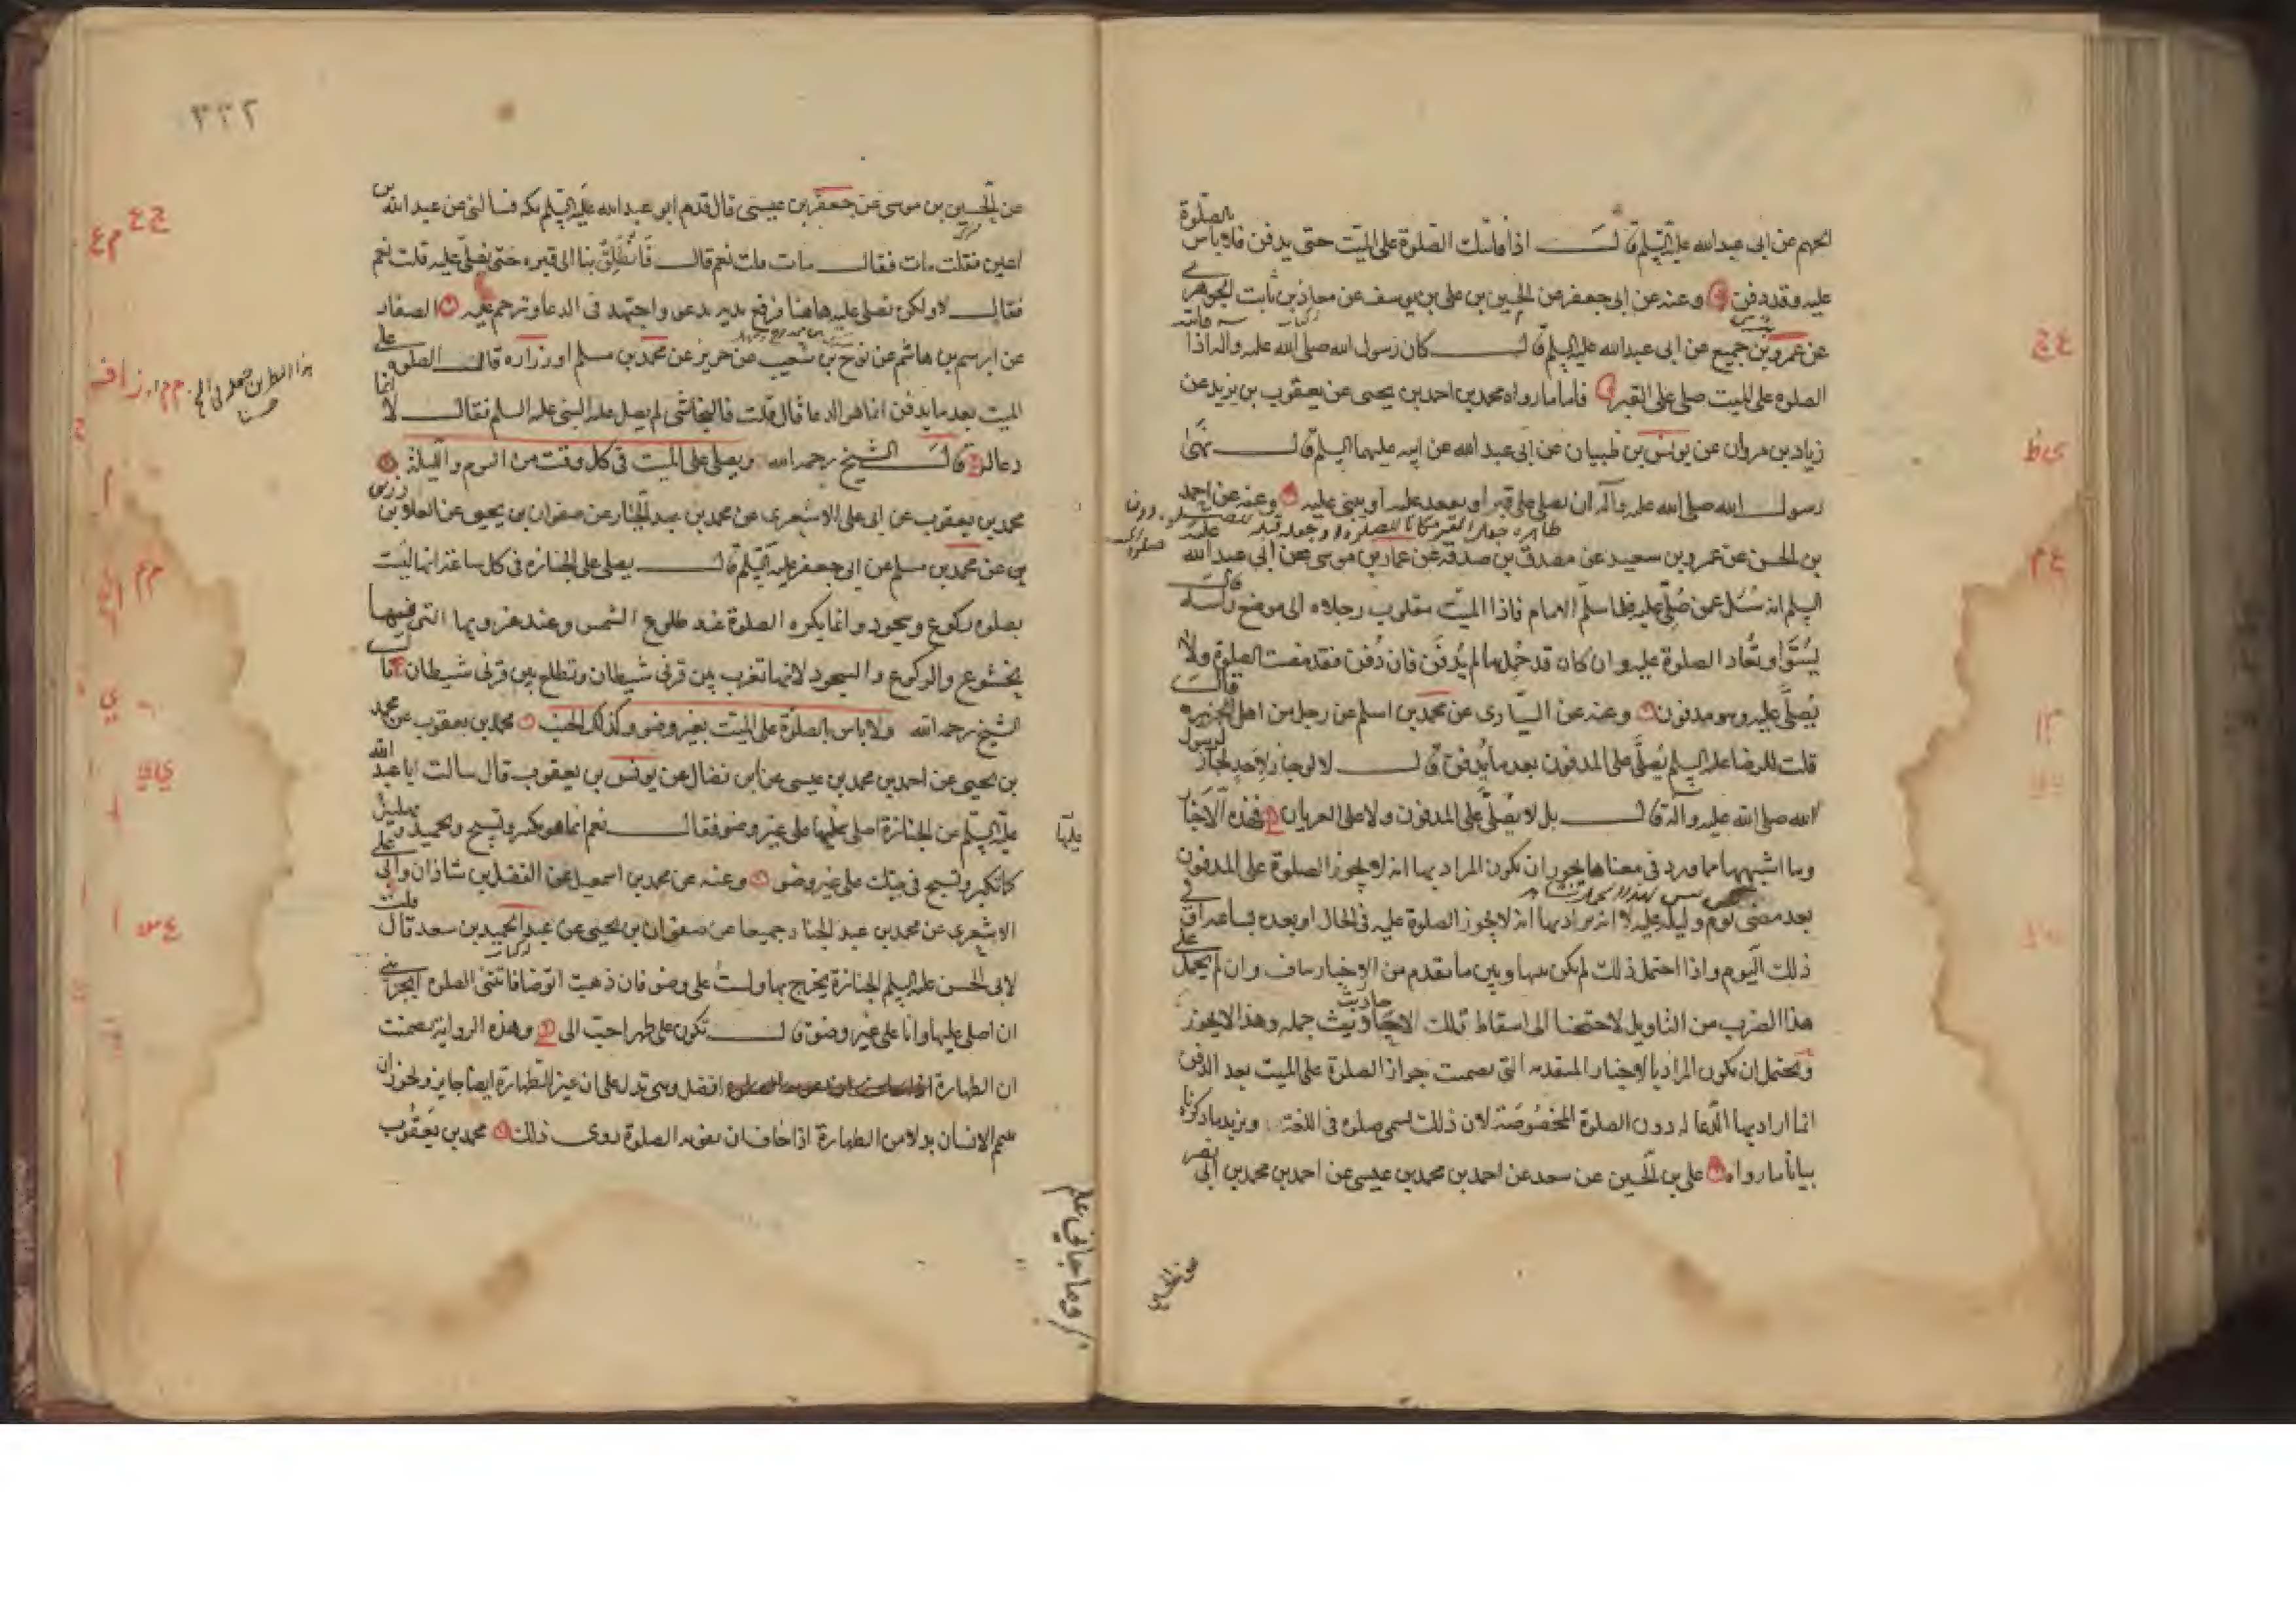 الجهم عن ابى عبد الله عليه السلم قال اذا فاتتك الصلوة على الميت حتى يدفن فلا باس بالصلوة
عليه وقد دفن وعنه عن ابى جعفر عن الحسين بن على بن يوسف عن معاذ بن ثابت الجوهرى
عن عمرو بن جميع عن ابى عبد الله عليه السلم قال كان رسول الله صلى الله عليه واله اذا فاتته
الصلوه على الميت صلى على القبر فاما ما رواه محمد بن احمد بن يحيى عن يعقوب بن يزيد عن
زياد بن مروان عن يونس بن ظبيان عن ابى عبد الله عن ابيه عليهما السلم قال نهى
رسول الله صلى الله عليه وآله ان يصلى على قبر او يقعد عليه او يبنى عليه وعنه عن احمد
بن الحسن عن عمرو بن سعيد عن مصدق بن صدقه عن عمار بن موسى عن ابى عبد الله عليه
السلم انه سئل عمن صلى عليه فلما سلم الامام فاذا الميت مقلوب رجلاه الى موضع راسه قال
يسوى وتعاد الصلوة عليه وان كان قد حمل ما لم يدفن فان دفن فقد مضت الصلوة ولا
يصلى عليه وهو مدفون وعنه عن السيارى عن محمد بن اسلم عن رجل من اهل الجزيره قال
قلت للرضا عليه السلم يصلى على المدفون بعد ما يدفن قال لا لو جاز لاحد لجاز لرسول
الله صلى الله عليه واله قال بل لا يصلى على المدفون ولا على العريان فهذه الاخبار
وما اشبهها مما ورد فى معناها يجوز ان يكون المراد بها انه لا يجوز الصلوة على المدفون
بعد مضى يوم وليله عليه لا انه يراد بها انه لا يجوز الصلوة عليه فى الحال او بعده بساعه او فى
ذلك اليوم واذا احتمل ذلك لم يكن بينها وبين ما تقدم من الاخبار تناف وان لم يحمل على
هذا الضرب من التاويل لاحتجنا الى اسقاط تلك الاحاديث جمله وهذا لا يجوز
ويحتمل ان يكون المراد بالاخبار المتقدمه التى تضمنت جواز الصلوة على الميت بعد الدفن
انما اراد بها الدعا له دون الصلوة المخصوصة لان ذلك يسمى صلوه فى اللغة ويزيد ما ذكرناه
بيانا ما رواه على بن الحسين عن سعد عن احمد بن محمد بن عيسى عن احمد بن محمد بن ابى نصر
٣٣٢
عن الحسين بن موسى عن جعفر بن عيسى قال قدم ابو عبد الله عليه السلم مكه فسالنى عن عبد الله بن
اعين فقلت مات فقال مات قلت نعم قال فانطلق بنا الى قبره حتى نصلى عليه قلت نعم
فقال لا ولكن نصلى عليه هاهنا فرفع يديه يدعو واجتهد فى الدعا وترحم عليه الصفار
عن ابرهيم بن هاشم عن نوح بن شعيب عن حريز عن محمد بن مسلم او زراره قال الصلوه على
الميت بعد ما يدفن انما هو الدعا قال قلت فالنجاشى لم يصل عليه النبى عليه السلم فقال لا انما
دعا له قال الشيخ رحمه الله ويصلى على الميت فى كل وقت من اليوم والليلة
محمد بن يعقوب عن ابى على الاشعرى عن محمد بن عبد الجبار عن صفوان بن يحيى عن العلا بن رزين
عن محمد بن مسلم عن ابى جعفر عليه السلم قال يصلى على الجنازه فى كل ساعة انها ليست
بصلوه ركوع وسجود وانما يكره الصلوة عند طلوع الشمس وعند غروبها التى فيها
الخشوع والركوع والسجود لانها تغرب بين قرنى شيطان وتطلع بين قرنى شيطان قال
الشيخ رحمه الله ولا باس بالصلوة على الميت بغير وضو وكذلك الجنب محمد بن يعقوب عن محمد
بن يحيى عن احمد بن محمد بن عيسى عن ابن فضال عن يونس بن يعقوب قال سالت ابا عبد الله
عليه السلم عن الجنازة اصلى عليها على غير وضو فقال نعم انما هو تكبير وتسبيح وتحميد وتهليل
كما تكبر وتسبح فى بيتك على غير وضو وعنه عن محمد بن اسمعيل عن الفضل بن شاذان وابى على
الاشعرى عن محمد بن عبد الجبار جميعا عن صفوان بن يحيى عن عبد الحميد بن سعد قال قلت
لابى الحسن عليه السلم الجنازة يخرج بها ولست على وضو فان ذهبت اتوضا فاتتنى الصلوه ايجزينى
ان اصلى عليها وانا على غير وضو قال تكون على طهر احب الى وهذه الرواية تضمنت
ان الطهارة افضل وهى تدل على ان غير الطهارة ايضا جايز ويجوز ان
يتيمم الانسان بدلا من الطهارة اذا خاف ان تفوته الصلوة روى ذلك محمد بن يعقوب